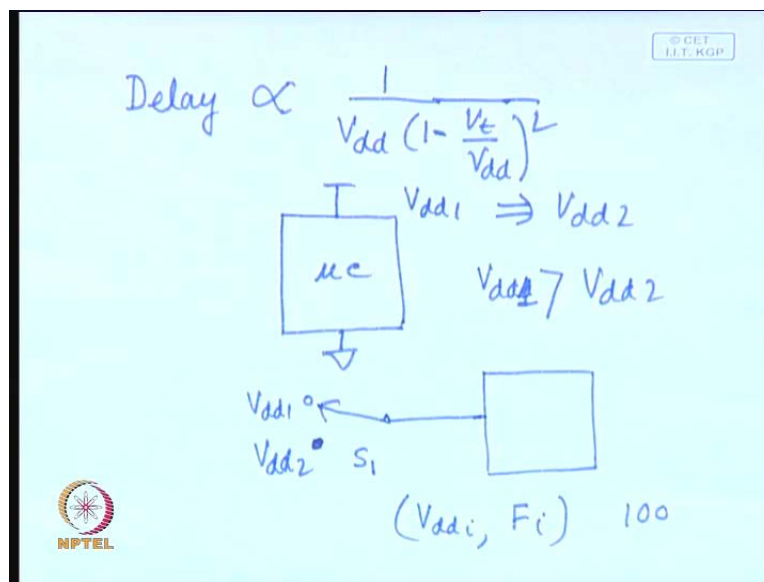 © CET
I.I.T. KGP
Delay ∝ 1 / Vdd (1 - Vt/Vdd)²
Vdd1 ⇒ Vdd2
μc
Vdd1 > Vdd2
Vdd1
Vdd2 S1
(Vddi, Fi) 100
NPTEL